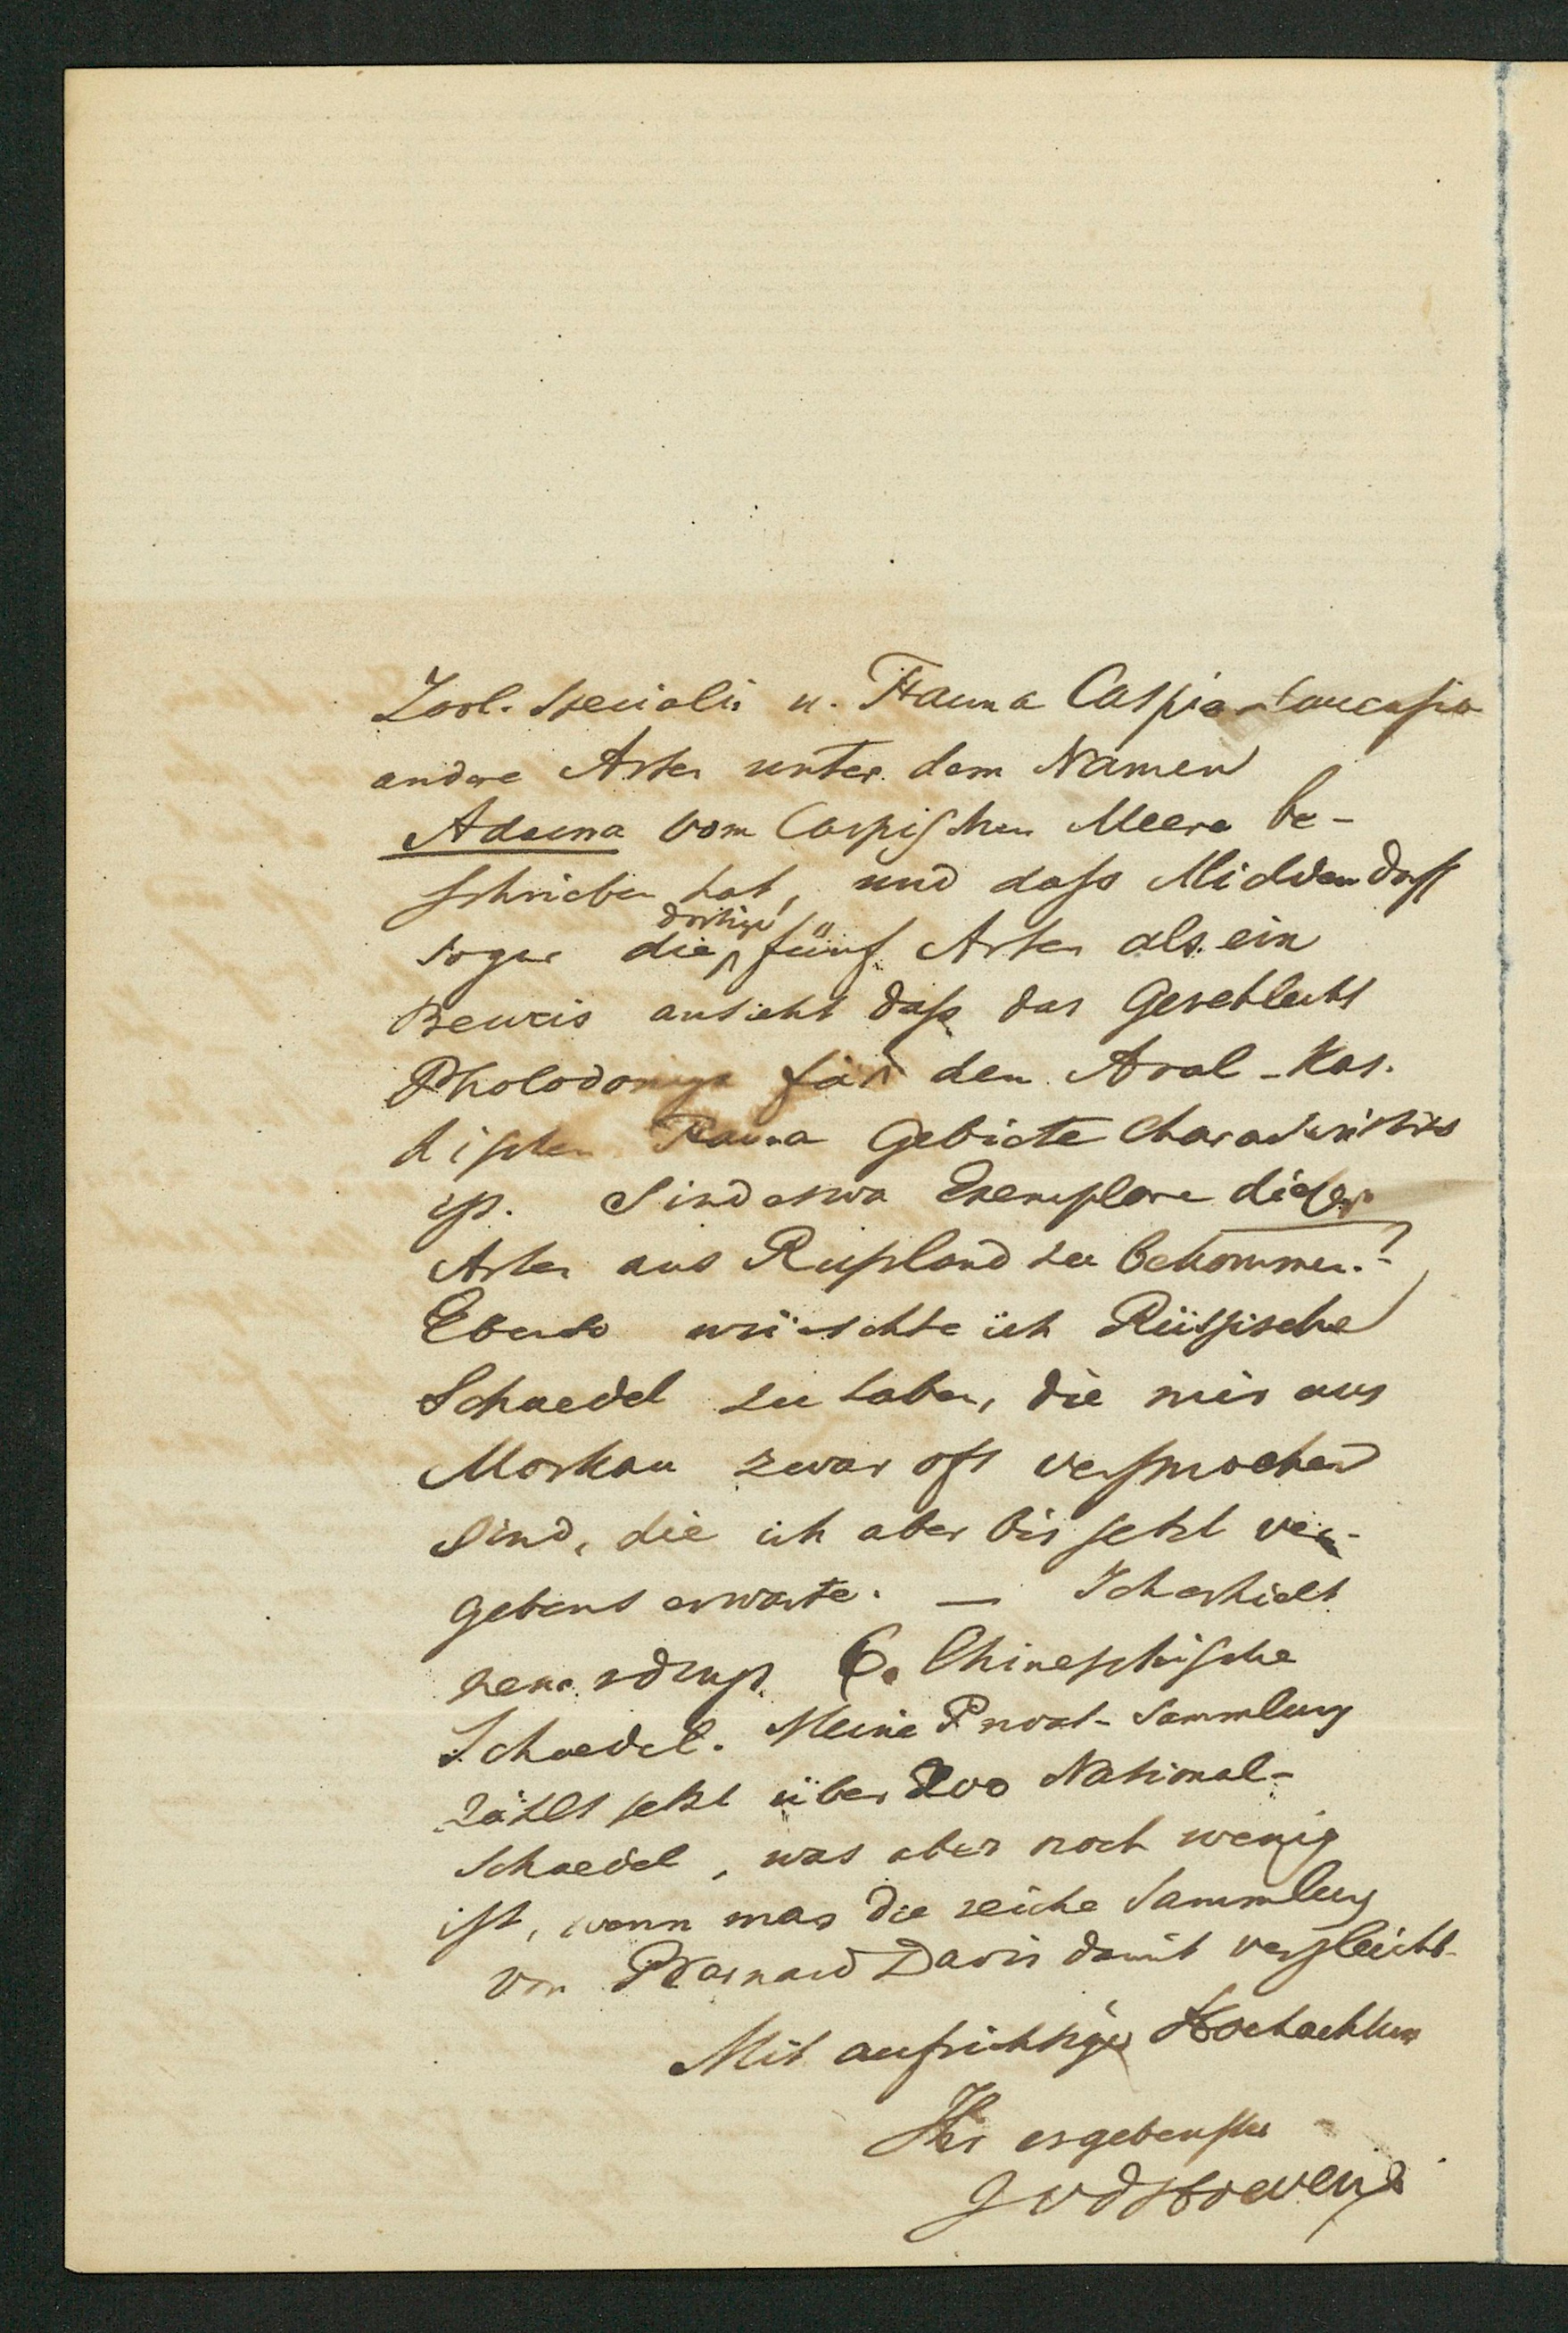 Zool. specialis u. Fauna Caspio-Caucasia
andere Arten unter dem Namen
Adacna vom Caspischen Meere be-
schrieben hat, und dass Middendorff
sogar die dortige fünf Arten als ein
Beweis ansieht dass das Geschlecht
Pholodomya für den Aral-Kas.
pischen Fauna Gebiete Characteristis
ist. Sind etwa Exemplare dieser
Arten aus Russland zu bekommen?
Ebenso wünschte ich Russische
Schaedel zu haben, die mir aus
Moskau zwar oft versprochen
sind, die ich aber bis jetzt ver-
gebens erwarte. — Ich erhielt
6. Chinesische
Schaedel. Meine Privat-Sammlung
zählt jetzt über 200 National-
schaedel, was aber noch wenig
ist, wenn man die reiche Sammlung
von Barnard Davis damit vergleicht.
Mit aufrichtiger Hochachtung
Ihr ergebenster
JvdHoeven